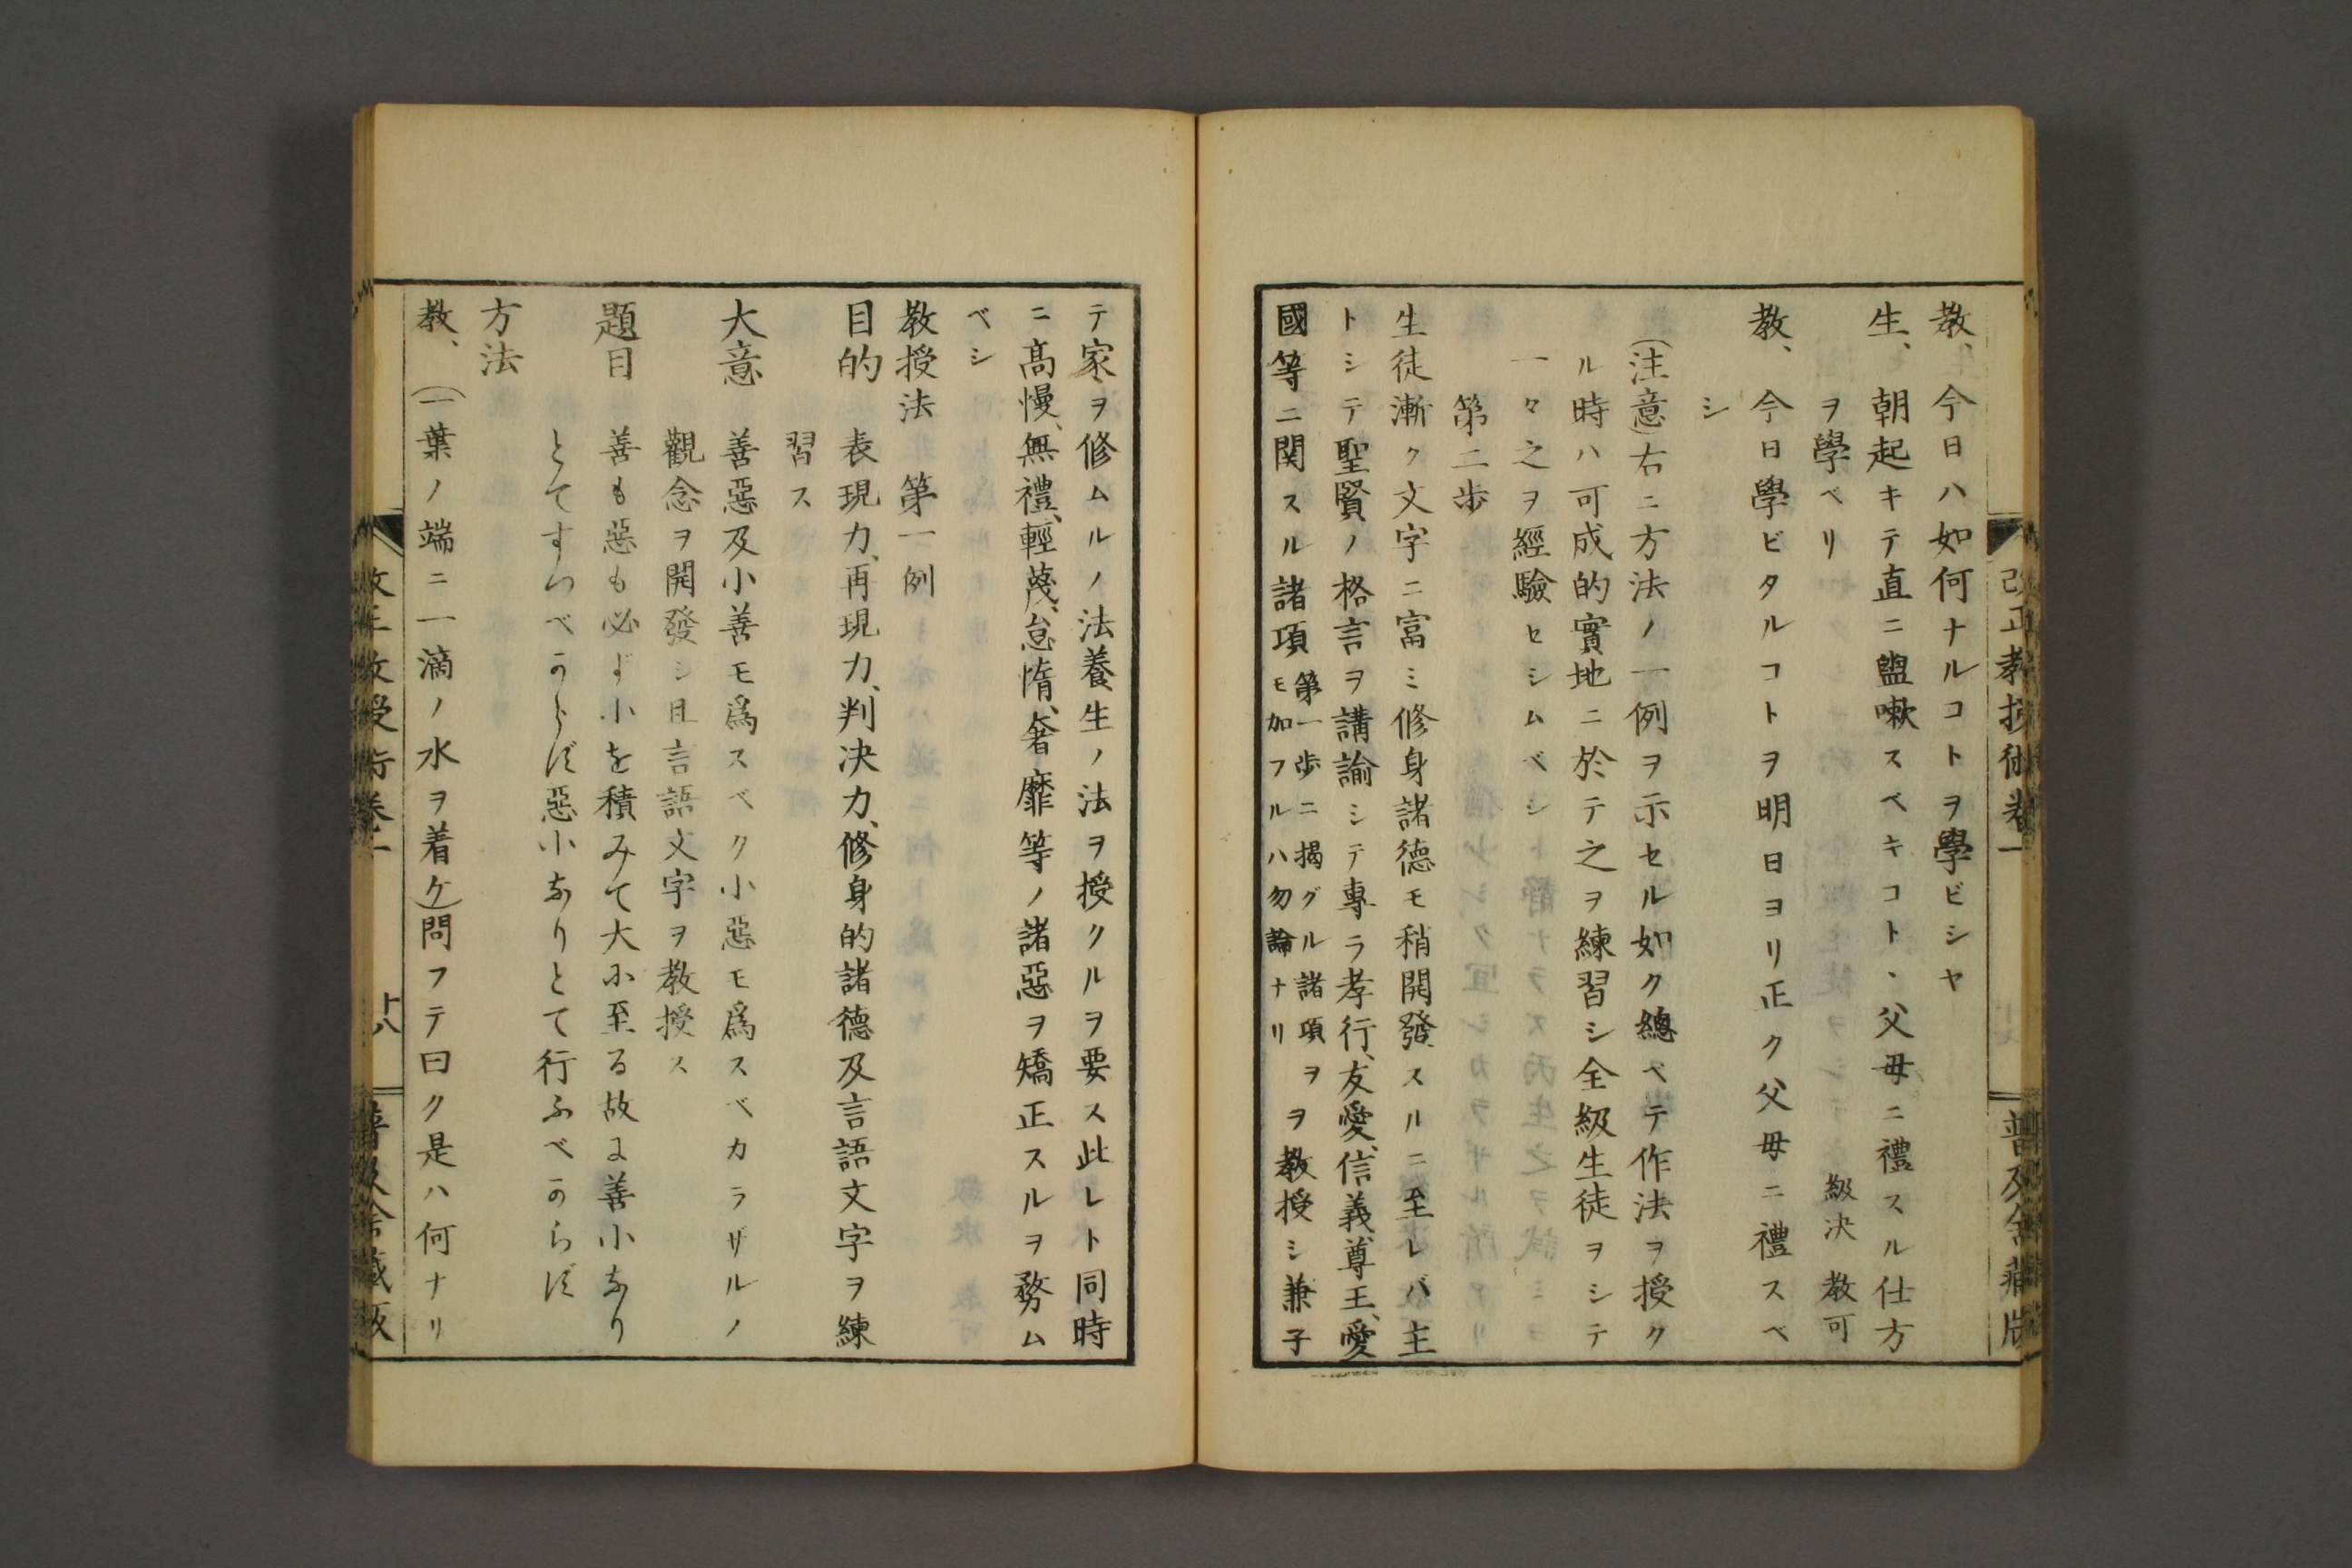 改正教授術卷一
普及舍藏版
教、今日ハ如何ナルコトヲ學ビシヤ
生、朝起キテ直ニ盥嗽スベキコト、父母ニ禮スル仕方
ヲ學ベリ 級決 教可
教、今日學ビタルコトヲ明日ヨリ正ク父母ニ禮スベ
シ
(注意)右ニ方法ノ一例ヲ示セル如ク總ベテ作法ヲ授ク
ル時ハ可成的實地ニ於テ之ヲ練習シ全級生徒ヲシテ
一々之ヲ經驗セシムベシ
第二步
生徒漸ク文字ニ富ミ修身諸德モ稍開發スルニ至レバ主
トシテ聖賢ノ格言ヲ講諭シテ專ラ孝行、友愛、信義、尊王、愛
國等ニ関スル諸項第一步ニ揭グル諸項ヲモ加フルハ勿論ナリヲ教授シ兼子
テ家ヲ修ムルノ法養生ノ法ヲ授クルヲ要ス此レト同時
ニ高慢、無禮、輕蔑、怠惰、奢靡等ノ諸惡ヲ矯正スルヲ務ム
ベシ
教授法 第一例
目的 表現力、再現力、判決力、修身的諸德及言語文字ヲ練
習ス
大意 善惡及小善モ爲スベク小惡モ爲スベカラザルノ
觀念ヲ開發シ且言語文字ヲ教授ス
題目 善も惡も必ず小を積みて大小至る故に善小なり
とてすつべからず惡小なりとて行ふべからず
方法
教、(一葉ノ端ニ一滴ノ水ヲ着ケ)問フテ曰ク是ハ何ナリ
十八